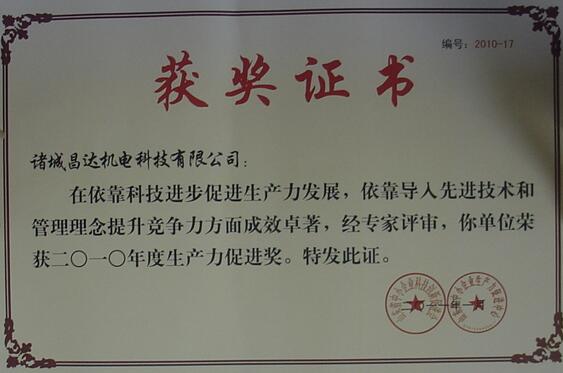 编号：2010-17
获奖证书
诸城昌达机电科技有限公司：
在依靠科技进步促进生产力发展，依靠导入先进技术和
管理理念提升竞争力方面成效卓著，经专家评审，你单位荣
获二〇一〇年度生产力促进奖。特发此证。
二〇一一年一月